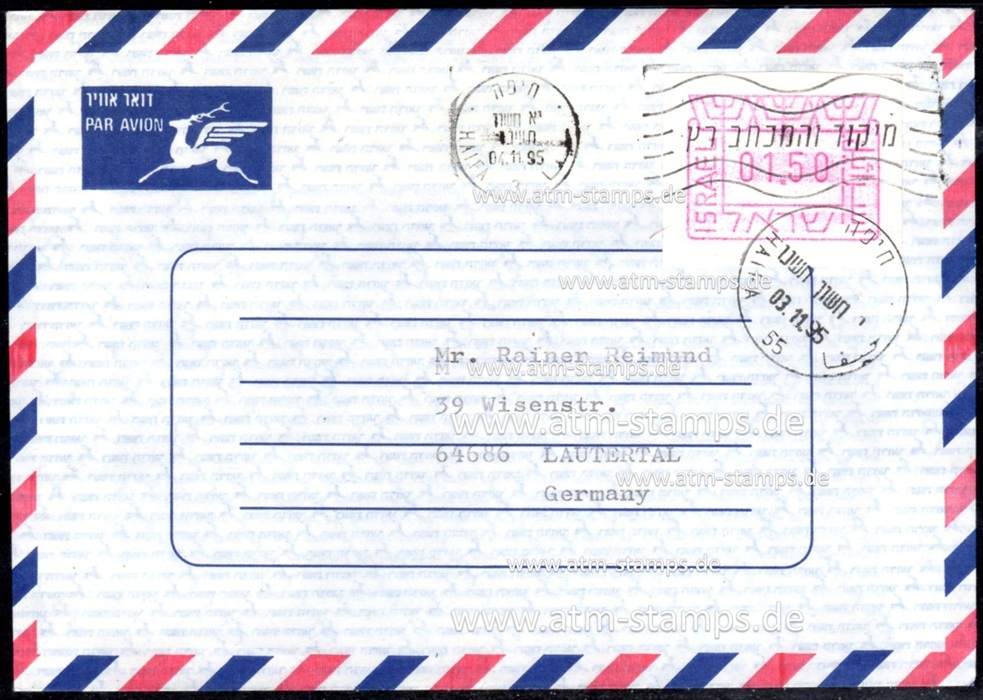 דואר אוויר
PAR AVION
חיפה
יא חשון
HAIFA
04.11.95
מיקוד והמכתב רץ
ISRAEL
01.50
ישראל
חיפה
HAIFA
י חשון תשנו
03.11.95
55
حيفا
Mr. Rainer Reimund
39 Wisenstr.
64686 LAUTERTAL
Germany
www.atm-stamps.de
www.atm-stamps.de
www.atm-stamps.de
www.atm-stamps.de
www.atm-stamps.de
www.atm-stamps.de
www.atm-stamps.de